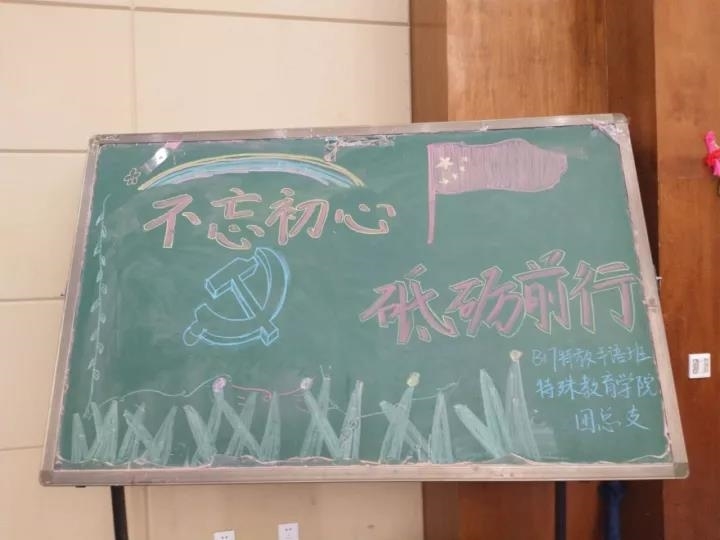 不忘初心
砥砺前行
B17特教手语班
特殊教育学院
团总支